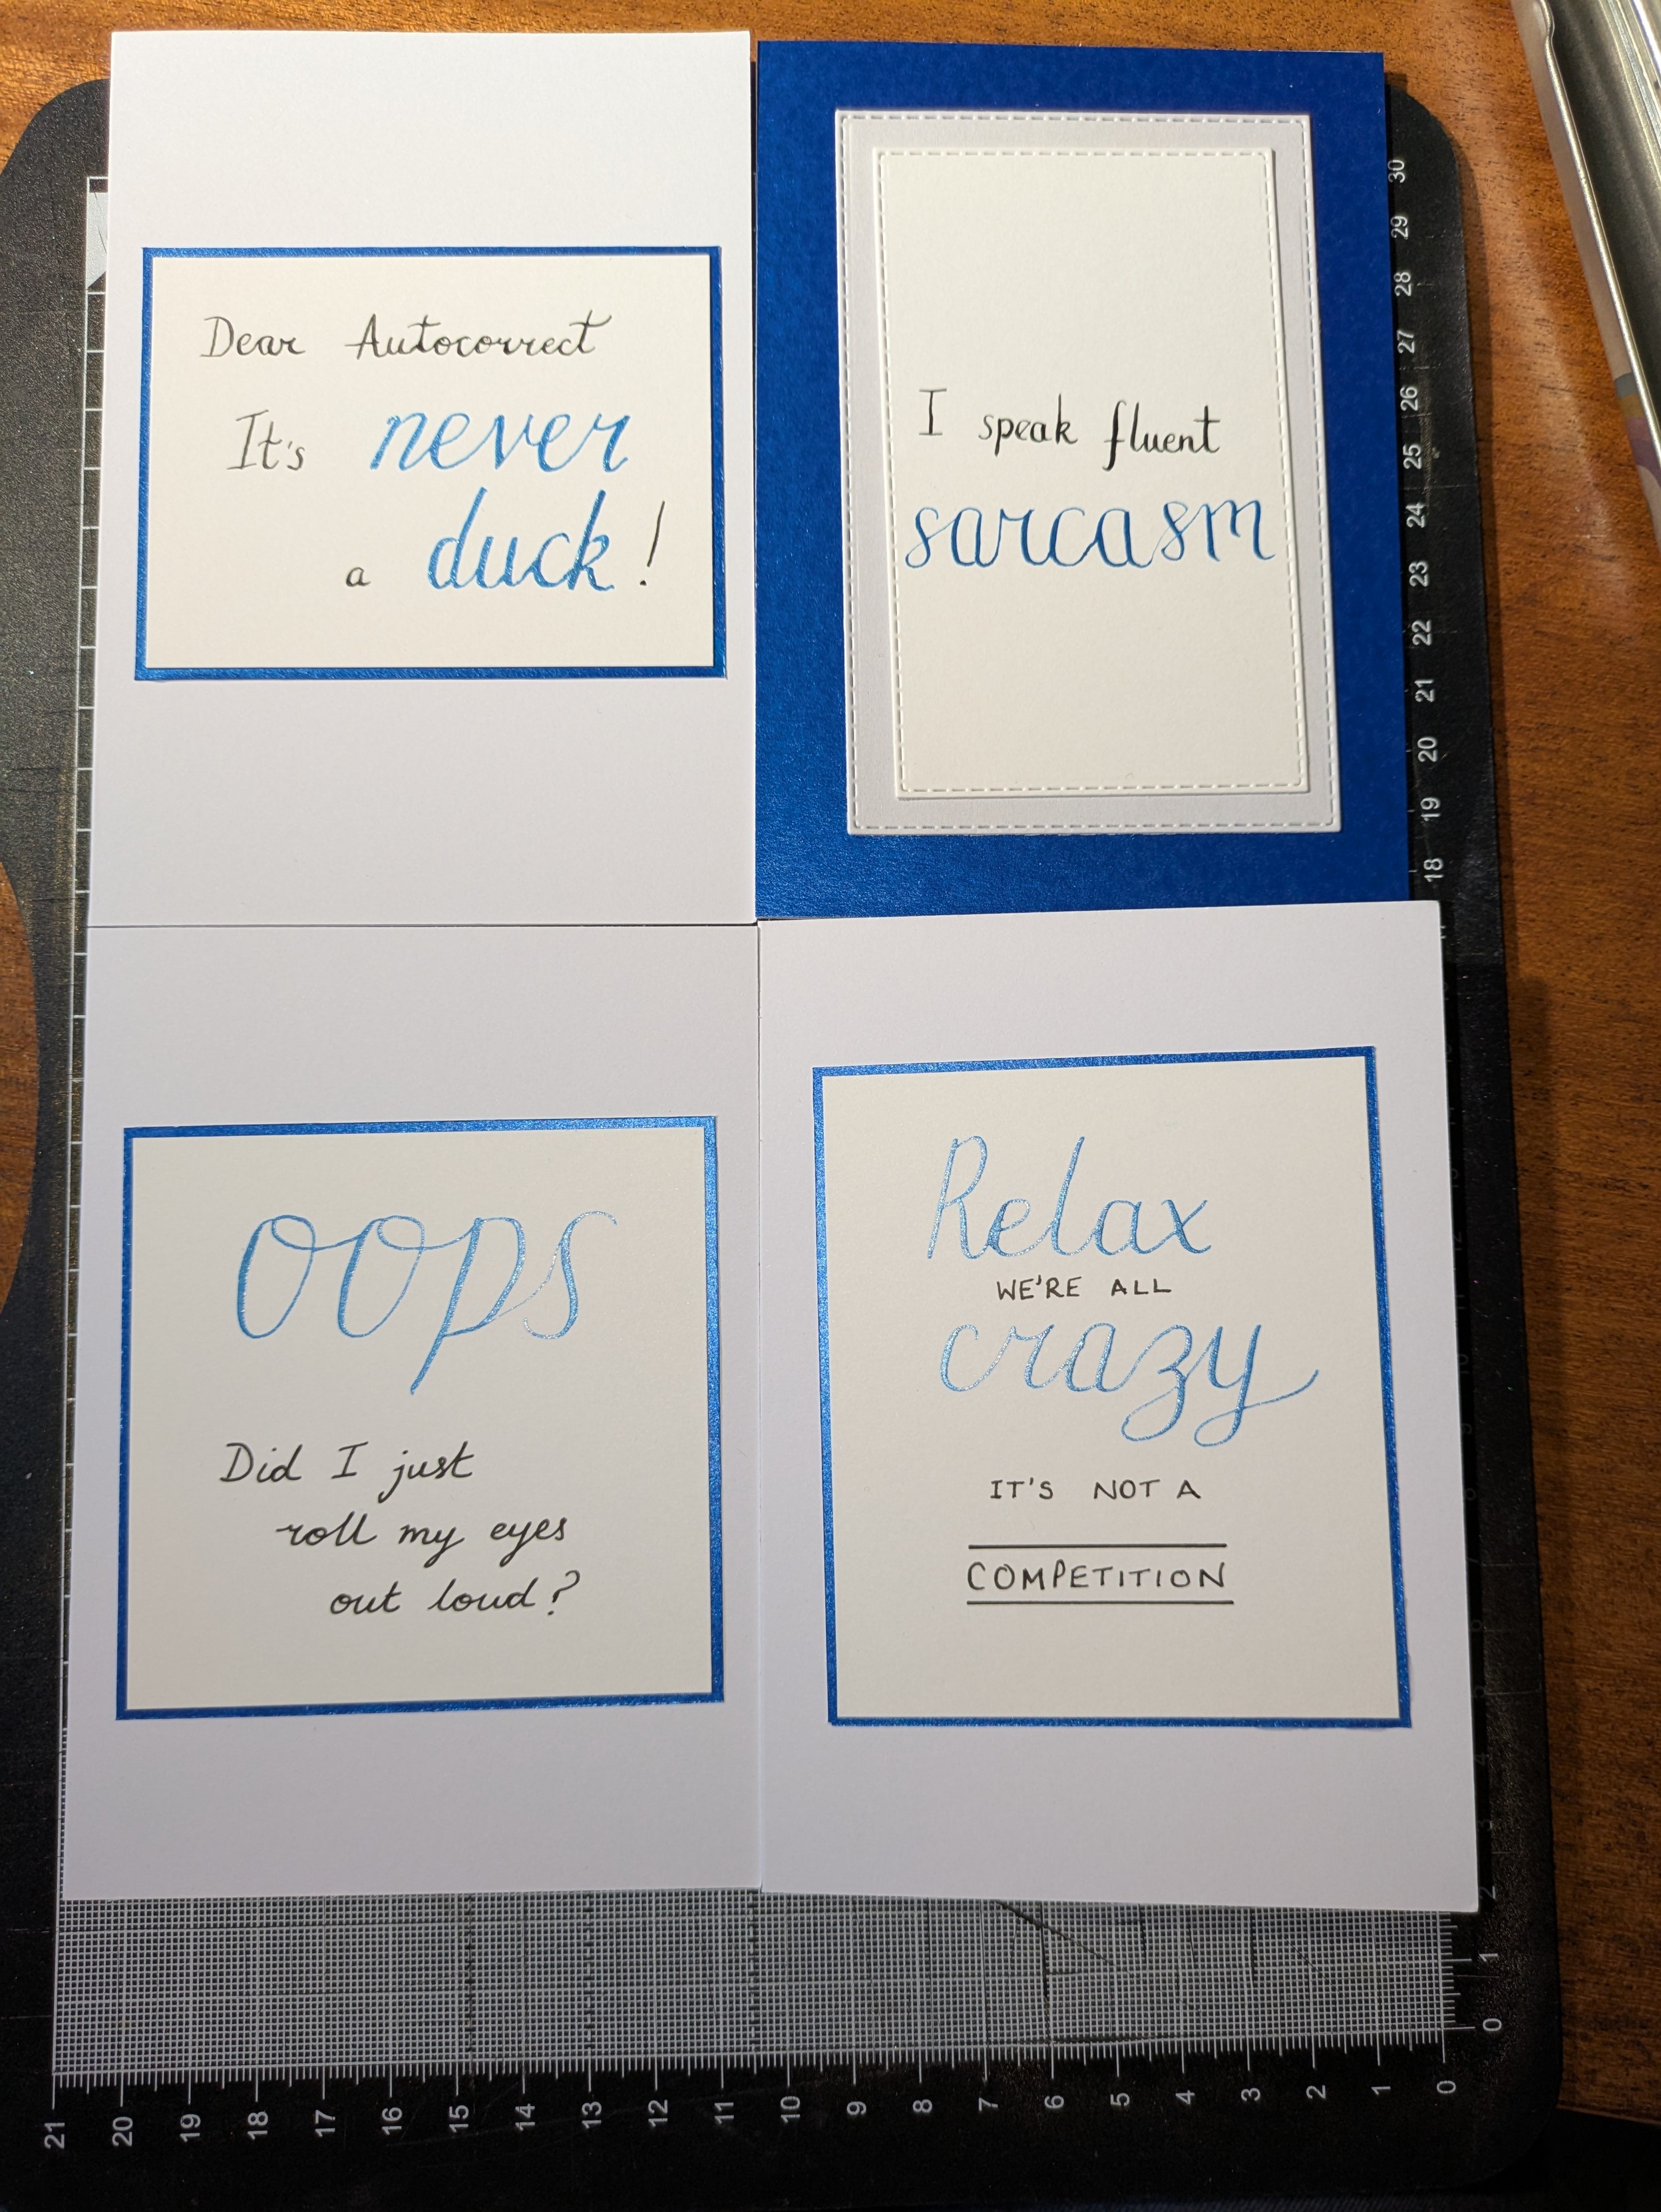 Dear Autocorrect
It's never
a duck!
I speak fluent
sarcasm
oops
Did I just
roll my eyes
out loud?
Relax
WE'RE ALL
crazy
IT'S NOT A
COMPETITION
30
29
28
27
26
25
24
23
22
21
20
19
18
2
1
0
21 20 19 18 17 16 15 14 13 12 11 10 9 8 7 6 5 4 3 2 1 0